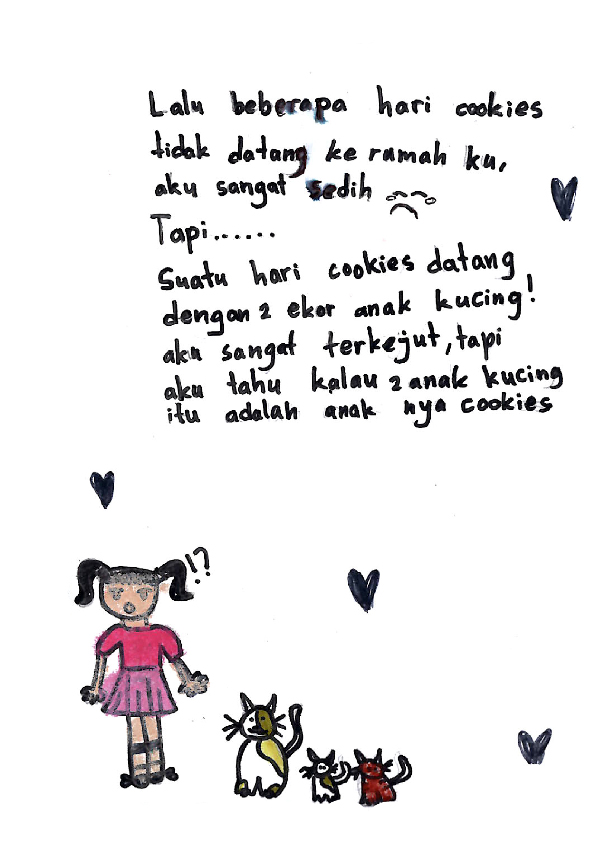 Lalu beberapa hari cookies
tidak datang ke rumah ku,
aku sangat sedih
Tapi......
Suatu hari cookies datang
dengan 2 ekor anak kucing!
aku sangat terkejut, tapi
aku tahu kalau 2 anak kucing
itu adalah anak nya cookies
!?